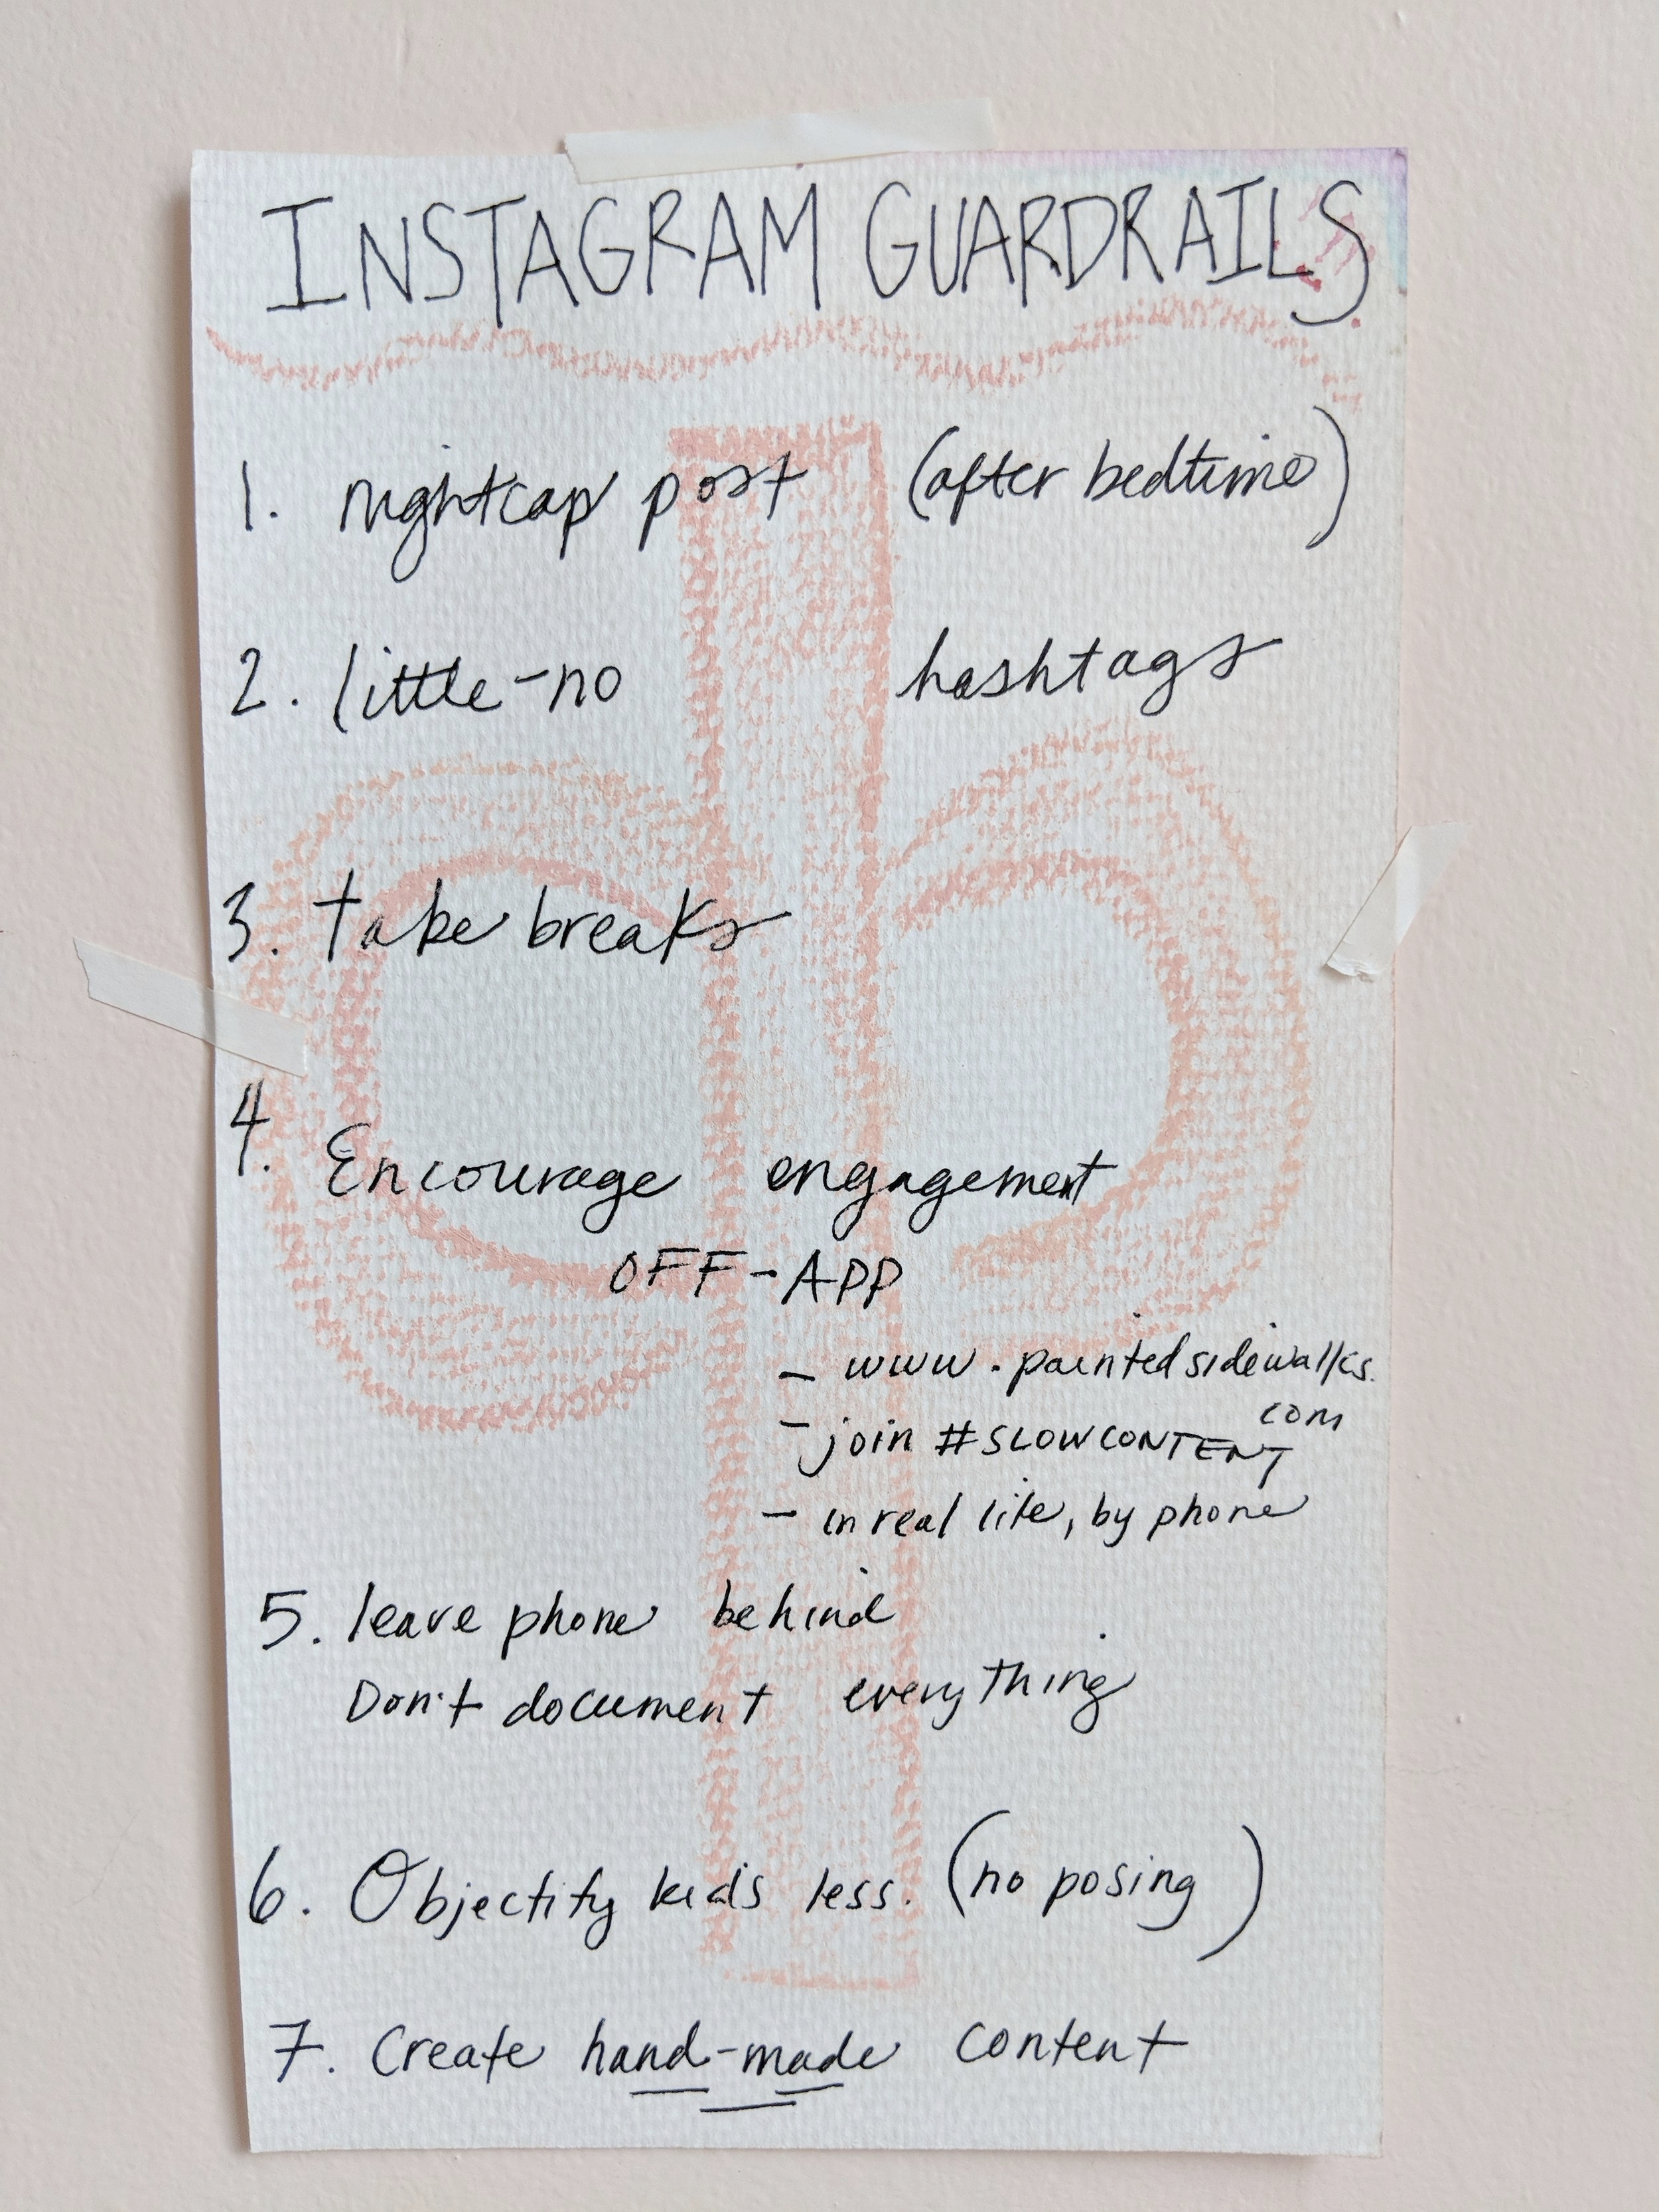 INSTAGRAM GUARDRAILS
1. nightcap post (after bedtime)
2. little-no hashtags
3. take breaks
4. Encourage engagement
OFF-APP
- www.paintedsidewalks.
com
- join #SLOWCONTENT
- in real life, by phone
5. leave phone behind
Don't document everything
6. Objectify kids less. (no posing)
7. Create hand-made content